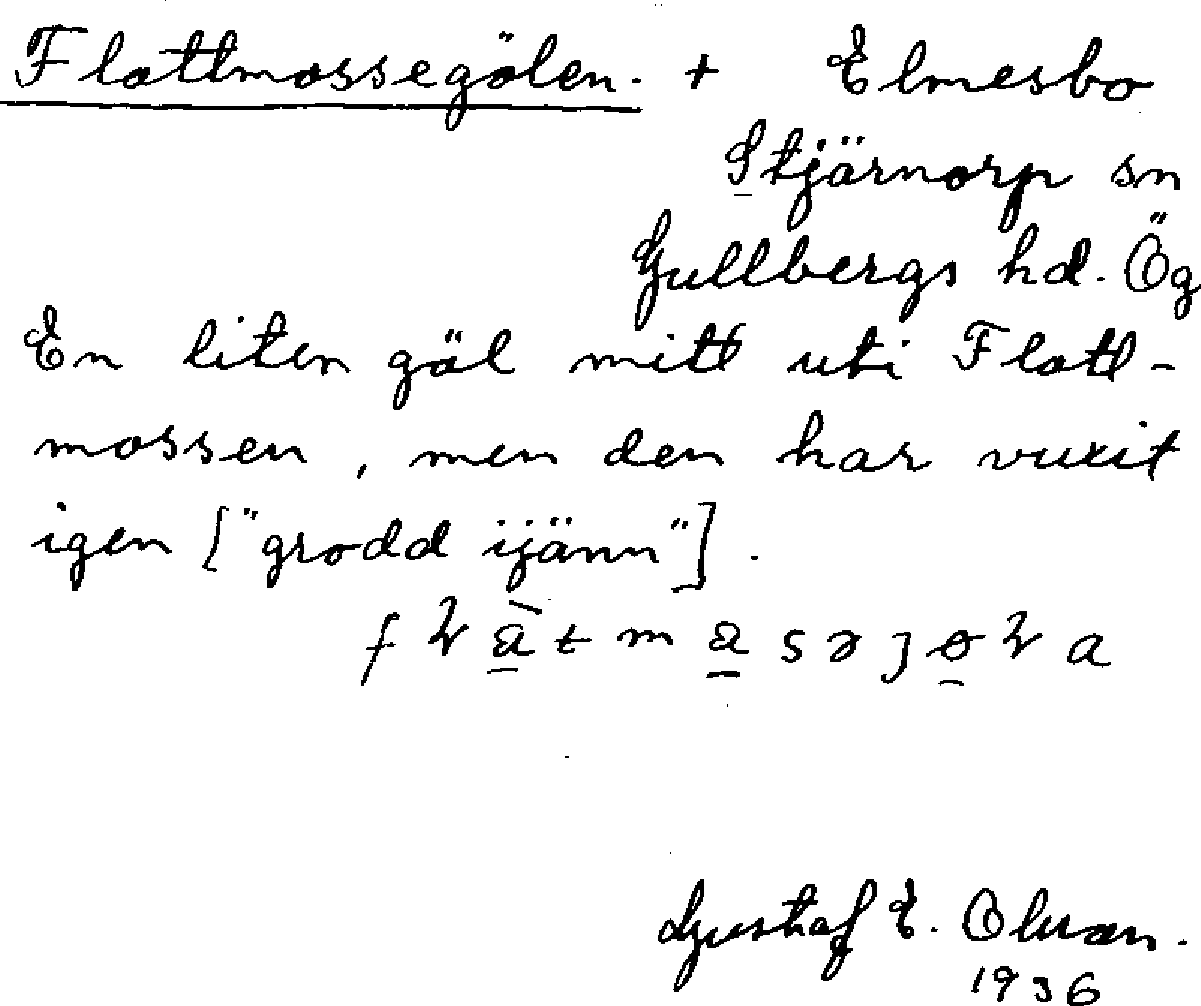 Flottmossegölen. + Elmesbo
Stjärnorp sn
Gullbergs hd. Ög
En liten göl mitt uti Flott-
mossen, men den har vuxit
igen ["grodd ijänn"].
Gustaf E. Olsson.
1936